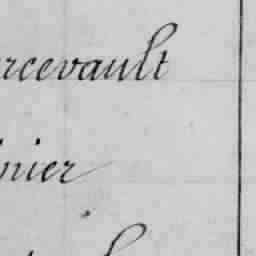 rcevault
nier